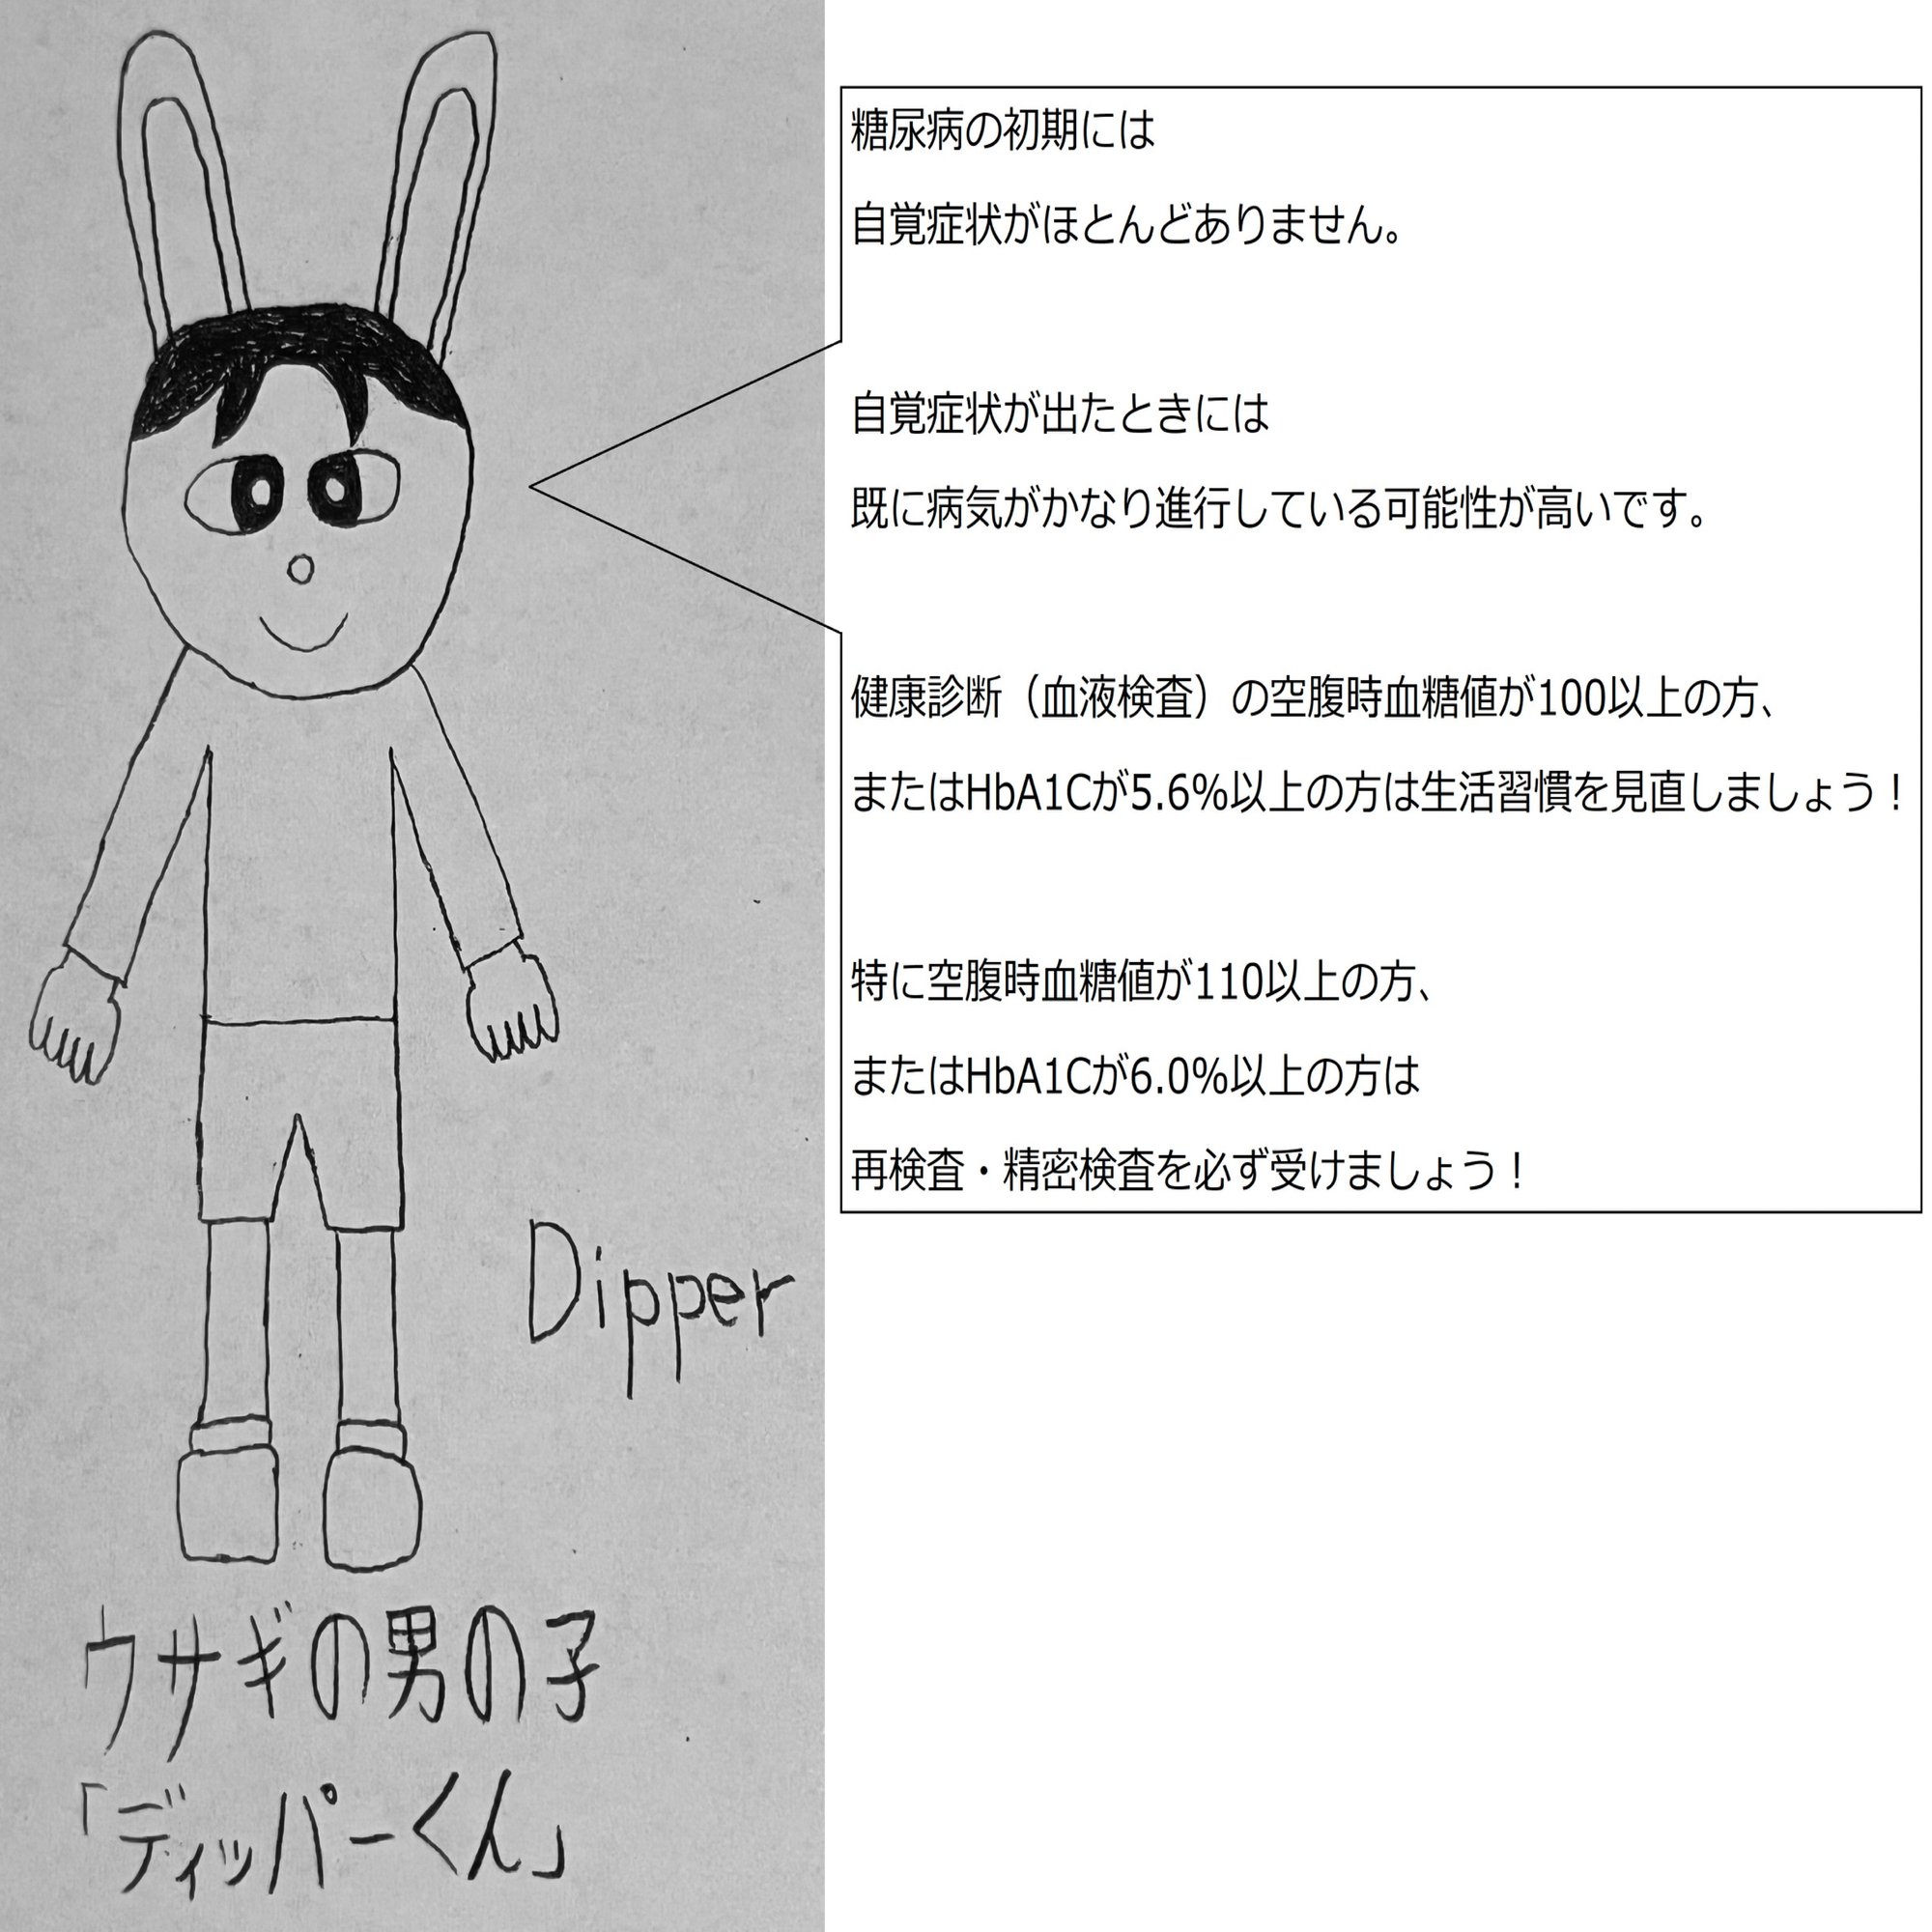 糖尿病の初期には
自覚症状がほとんどありません。
自覚症状が出たときには
既に病気がかなり進行している可能性が高いです。
健康診断（血液検査）の空腹時血糖値が100以上の方、
またはHbA1Cが5.6%以上の方は生活習慣を見直しましょう！
特に空腹時血糖値が110以上の方、
またはHbA1Cが6.0%以上の方は
再検査・精密検査を必ず受けましょう！
Dipper
ウサギの男の子
「ディッパーくん」